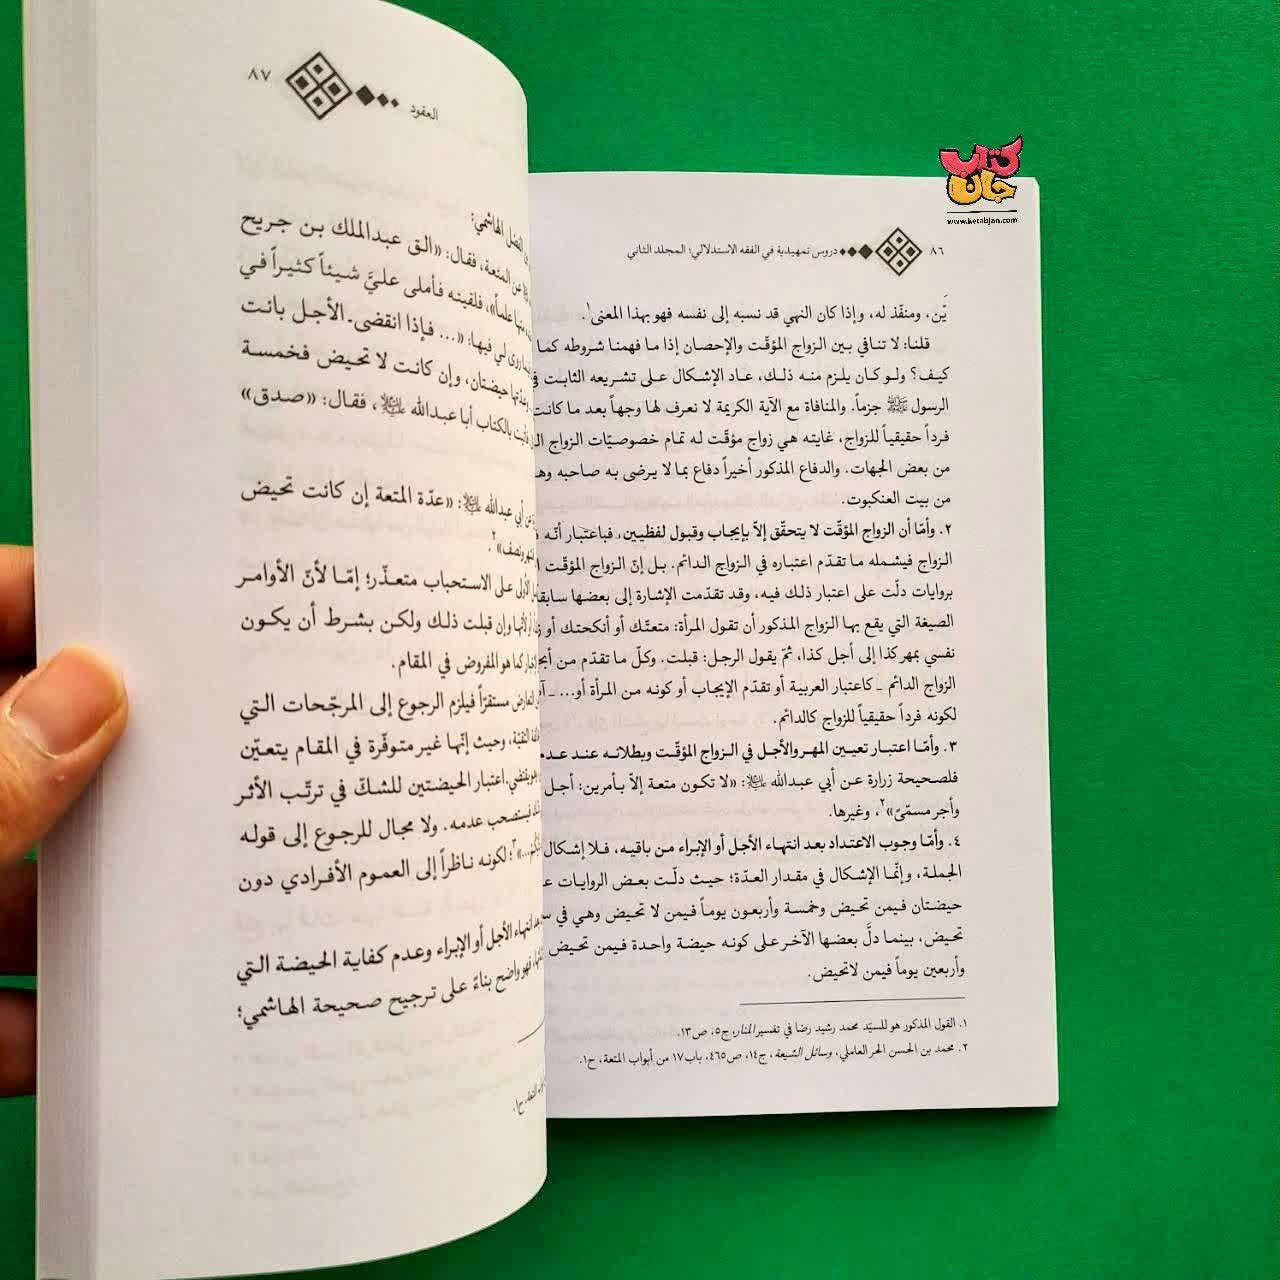 كتاب جان
www.ketabjan.com
٨٦ دروس تمهيدية في الفقه الاستدلالي؛ المجلد الثاني
يَّن، ومنفّذ له، وإذا كان النهي قد نسبه إلى نفسه فهو بهذا المعنى١.
قلنا: لا تنافي بين الزواج المؤقّت والإحصان إذا ما فهمنا شروطه كما
كيف؟ ولو كان يلزم منه ذلك، عاد الإشكال على تشريعه الثابت
الرسول ﷺ جزماً. والمنافاة مع الآية الكريمة لا نعرف لها وجهاً بعد ما كانت
فرداً حقيقياً للزواج، غايته هي زواج مؤقّت له تمام خصوصيّات الزواج
من بعض الجهات. والدفاع المذكور أخيراً دفاع بما لا يرضى به صاحبه
من بيت العنكبوت.
٢. وأمّا أن الزواج المؤقّت لا يتحقّق إلّا بإيجاب وقبول لفظيين، فباعتبار أنّه
الزواج فيشمله ما تقدّم اعتباره في الزواج الدائم. بل إنّ الزواج المؤقّت
بروايات دلّت على اعتبار ذلك فيه، وقد تقدّمت الإشارة إلى بعضها
الصيغة التي يقع بها الزواج المذكور أن تقول المرأة: متعتك أو أنكحتك أو
نفسي بمهر كذا إلى أجل كذا، ثمّ يقول الرجل: قبلت. وكلّ ما تقدّم من
الزواج الدائم ـ كاعتبار العربية أو تقدّم الإيجاب أو كونه من المرأة أو... ـ
لكونه فرداً حقيقياً للزواج كالدائم.
٣. وأمّا اعتبار تعيين المهر والأجل في الزواج المؤقّت وبطلانه عند
فلصحيحة زرارة عن أبي عبدالله ﵇: «لا تكون متعة إلّا بأمرين: أجل
وأجر مسمّىً»٢، وغيرها.
٤. وأمّا وجوب الاعتداد بعد انتهاء الأجل أو الإبراء من باقيه، فلا إشكال
الجملة، وإنّما الإشكال في مقدار العدّة؛ حيث دلّت بعض الروايات
حيضتان فيمن تحيض وخمسة وأربعون يوماً فيمن لا تحيض وهي في
تحيض، بينما دلَّ بعضها الآخر على كونه حيضة واحدة فيمن تحيض
وأربعين يوماً فيمن لاتحيض.
١. القول المذكور هو للسيّد محمد رشيد رضا في تفسير المنار، ج٥، ص١٣.
٢. محمد بن الحسن الحر العاملي، وسائل الشيعة، ج١٤، ص٤٦٥، باب١٧ من أبواب المتعة، ح١.
العقود ٨٧
الفضل الهاشمي:
عن المتعة، فقال: «الق عبدالملك بن جريح
منها علماً»، فلقيته فأملى عليَّ شيئاً كثيراً في
روى لي فيها: «... فإذا انقضى الأجل بانت
حيضتان، وإن كانت لا تحيض فخمسة
بالكتاب أبا عبدالله ﵇، فقال: «صدق»
عن أبي عبدالله ﵇: «عدّة المتعة إن كانت تحيض
ونصف»٢.
الأولى على الاستحباب متعذّر؛ إمّا لأنّ الأوامر
وإن قبلت ذلك ولكن بشرط أن يكون
كما هو المفروض في المقام.
التعارض مستقرّاً فيلزم الرجوع إلى المرجّحات التي
التقيّة، وحيث إنّها غير متوفّرة في المقام يتعيّن
اعتبار الحيضتين للشكّ في ترتّب الأثر
فيستصحب عدمه. ولا مجال للرجوع إلى قوله
...»٣؛ لكونه ناظراً إلى العموم الأفرادي دون
بعد انتهاء الأجل أو الإبراء وعدم كفاية الحيضة التي
فهو واضح بناءً على ترجيح صحيحة الهاشمي؛